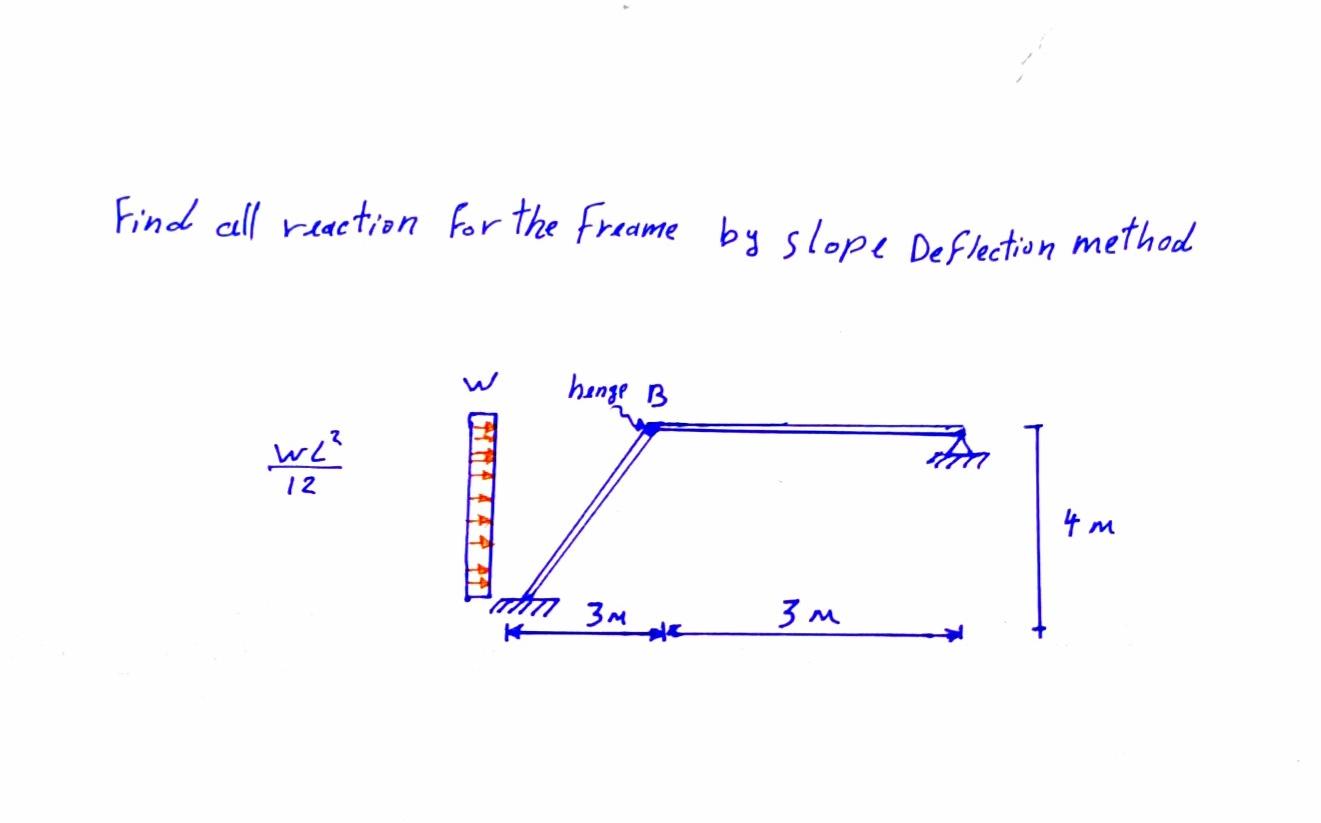 Find all reaction for the freame by slope Deflection method
W
henge B
WL²
12
4 m
3m
3 m